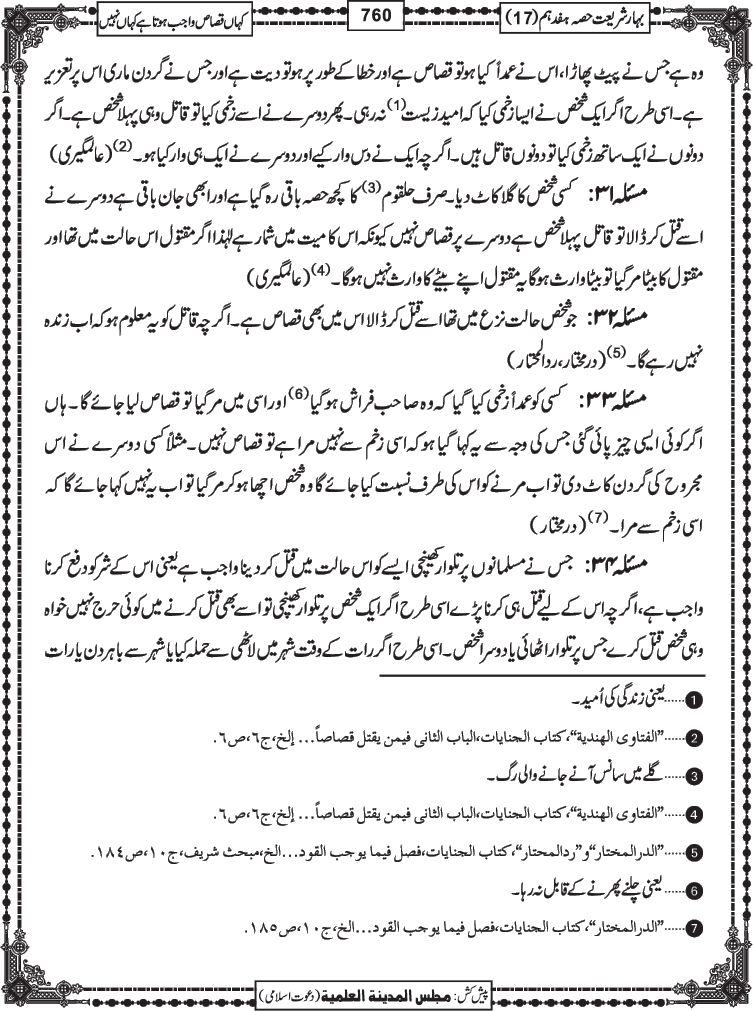 بہار شریعت حصہ ہفدہم (17)
760
کہاں قصاص واجب ہوتا ہے کہاں نہیں
وہ ہے جس نے پیٹ پھاڑا، اس نے عمداً کیا ہو تو قصاص ہے اور خطا کے طور پر ہو تو دیت ہے اور جس نے گردن ماری اس پر تعزیر
ہے۔ اسی طرح اگر ایک شخص نے ایسا زخمی کیا کہ امید زیست (1) نہ رہی۔ پھر دوسرے نے اسے زخمی کیا تو قاتل وہی پہلا شخص ہے۔ اگر
دونوں نے ایک ساتھ زخمی کیا تو دونوں قاتل ہیں۔ اگرچہ ایک نے دس وار کیے اور دوسرے نے ایک ہی وار کیا ہو۔ (2) (عالمگیری)
مسئلہ ۳۱: کسی شخص کا گلا کاٹ دیا۔ صرف حلقوم (3) کا کچھ حصہ باقی رہ گیا ہے اور ابھی جان باقی ہے دوسرے نے
اسے قتل کر ڈالا تو قاتل پہلا شخص ہے دوسرے پر قصاص نہیں کیونکہ اس کا میت میں شمار ہے لہٰذا اگر مقتول اس حالت میں تھا اور
مقتول کا بیٹا مر گیا تو بیٹا وارث ہوگا یہ مقتول اپنے بیٹے کا وارث نہیں ہوگا۔ (4) (عالمگیری)
مسئلہ ۳۲: جو شخص حالت نزع میں تھا اسے قتل کر ڈالا اس میں بھی قصاص ہے۔ اگرچہ قاتل کو یہ معلوم ہو کہ اب زندہ
نہیں رہے گا۔ (5) (درمختار، ردالمحتار)
مسئلہ ۳۳: کسی کو عمداً زخمی کیا گیا کہ وہ صاحب فراش ہوگیا (6) اور اسی میں مر گیا تو قصاص لیا جائے گا۔ ہاں
اگر کوئی ایسی چیز پائی گئی جس کی وجہ سے یہ کہا گیا ہو کہ اسی زخم سے نہیں مرا ہے تو قصاص نہیں۔ مثلاً کسی دوسرے نے اس
مجروح کی گردن کاٹ دی تو اب مرنے کو اس کی طرف نسبت کیا جائے گا وہ شخص اچھا ہو کر مر گیا تو اب یہ نہیں کہا جائے گا کہ
اسی زخم سے مرا۔ (7) (درمختار)
مسئلہ ۳۴: جس نے مسلمانوں پر تلوار کھینچی ایسے کو اس حالت میں قتل کر دینا واجب ہے یعنی اس کے شر کو دفع کرنا
واجب ہے، اگرچہ اس کے لیے قتل ہی کرنا پڑے اسی طرح اگر ایک شخص پر تلوار کھینچی تو اسے بھی قتل کرنے میں کوئی حرج نہیں خواہ
وہی شخص قتل کرے جس پر تلوار اٹھائی یا دوسرا شخص۔ اسی طرح اگر رات کے وقت شہر میں لاٹھی سے حملہ کیا یا شہر سے باہر دن یا رات
1 ......یعنی زندگی کی اُمید۔
2 ......”الفتاوى الهندية“، كتاب الجنايات، الباب الثاني فيمن يقتل قصاصاً... إلخ، ج٦، ص٦.
3 ......گلے میں سانس آنے جانے والی رگ۔
4 ......”الفتاوى الهندية“، كتاب الجنايات، الباب الثاني فيمن يقتل قصاصاً... إلخ، ج٦، ص٦.
5 ......”الدرالمختار“ و ”ردالمحتار“، كتاب الجنايات، فصل فيما يوجب القود...الخ، مبحث شريف، ج١٠، ص١٨٤.
6 ......یعنی چلنے پھرنے کے قابل نہ رہا۔
7 ......”الدرالمختار“، كتاب الجنايات، فصل فيما يوجب القود...الخ، ج١٠، ص١٨٥.
پیش کش: مجلس المدینۃ العلمیۃ (دعوت اسلامی)